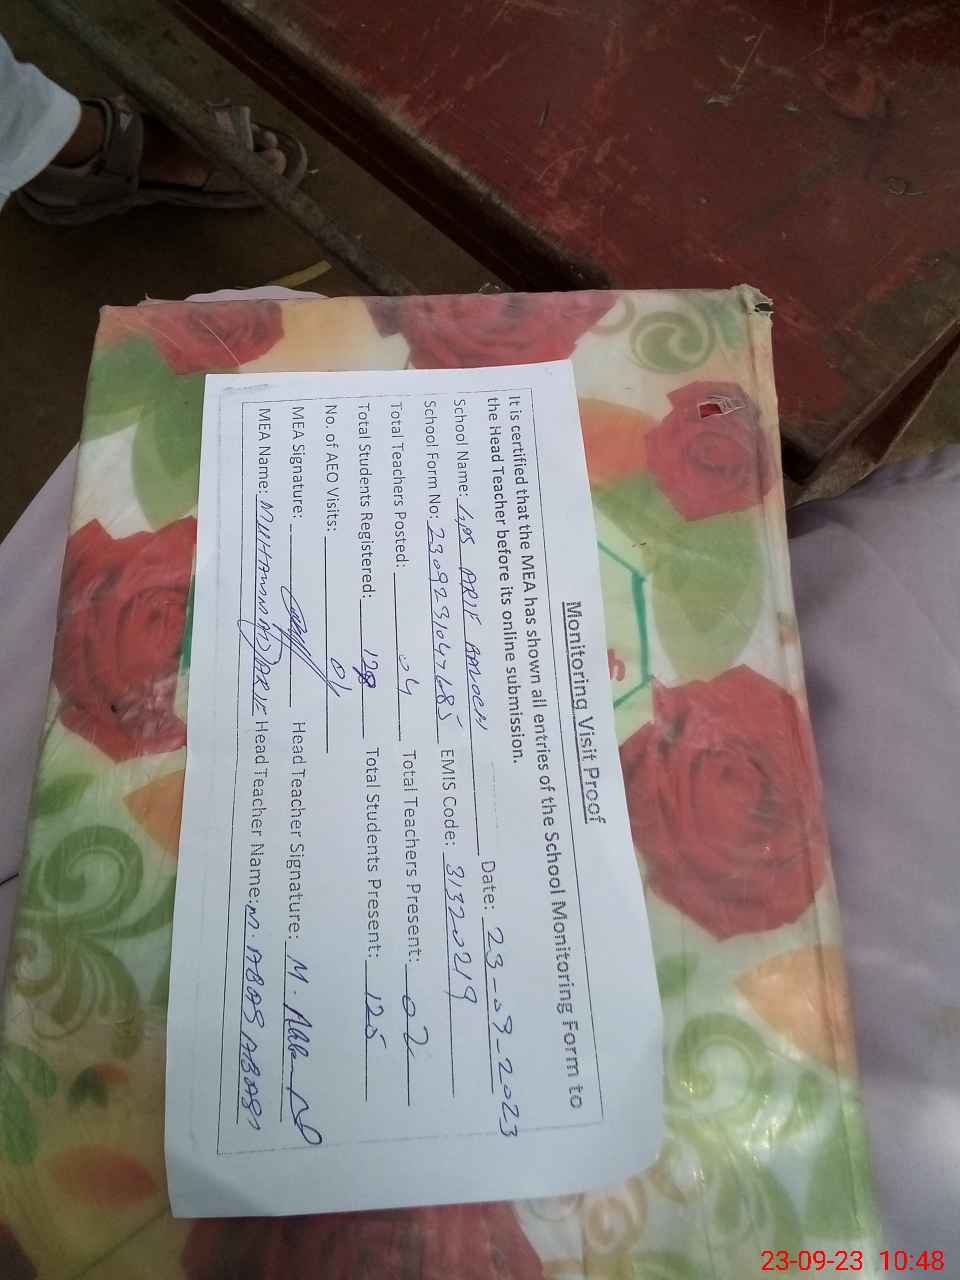 Monitoring Visit Proof
It is certified that the MEA has shown all entries of the School Monitoring Form to
the Head Teacher before its online submission.
School Name: GPS ARIF Date: 23-09-2023
School Form No: EMIS Code: 31320219
Total Teachers Posted: 04 Total Teachers Present: 02
Total Students Registered: 128 Total Students Present: 125
No. of AEO Visits: 01
MEA Signature: Head Teacher Signature: M.
MEA Name: MUHAMMAD ARIF Head Teacher Name: M. ABAS ABASI
23-09-23 10:48